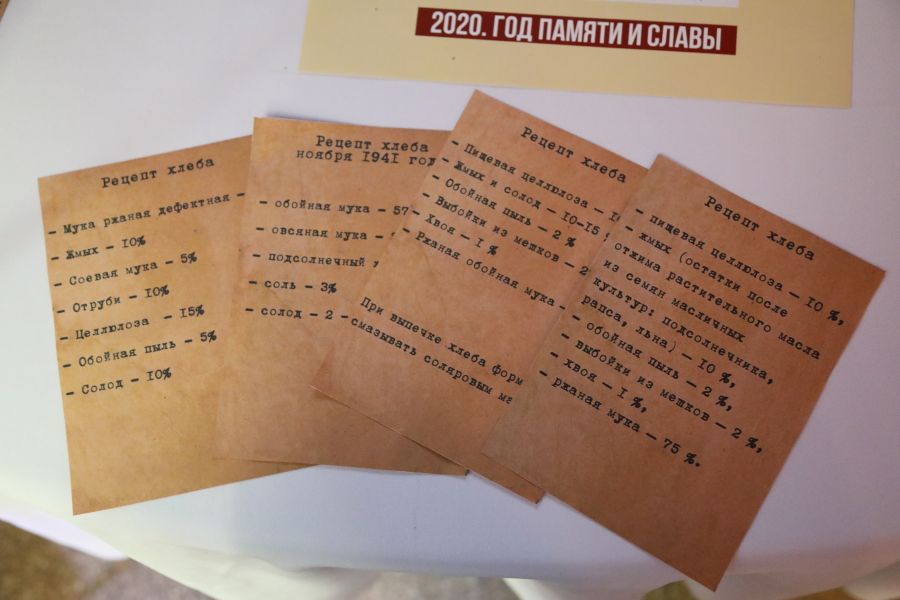 2020. ГОД ПАМЯТИ И СЛАВЫ
Рецепт хлеба
- Мука ржаная дефектная -
- Жмых - 10%
- Соевая мука - 5%
- Отруби - 10%
- Целлюлоза - 15%
- Обойная пыль - 5%
- Солод - 10%
Рецепт хлеба
ноября 1941 год
- обойная мука - 57
- овсяная мука -
- подсолнечный
- соль - 3%
- солод - 2
Рецепт хлеба
- Пищевая целлюлоза - 10
- Жмых и солод - 10-15
- Обойная пыль - 2 %
- Выбойки из мешков - 2
- Хвоя - 1 %
- Ржаная обойная мука -
При выпечке хлеба форм
смазывать соляровым
Рецепт хлеба
- пищевая целлюлоза - 10 %,
- жмых (остатки после
отжима растительного масла
из семян масличных
культур: подсолнечника,
рапса, льна) - 10 %,
- обойная пыль - 2 %,
- выбойки из мешков - 2 %,
- хвоя - 1 %,
- ржаная мука - 75 %.